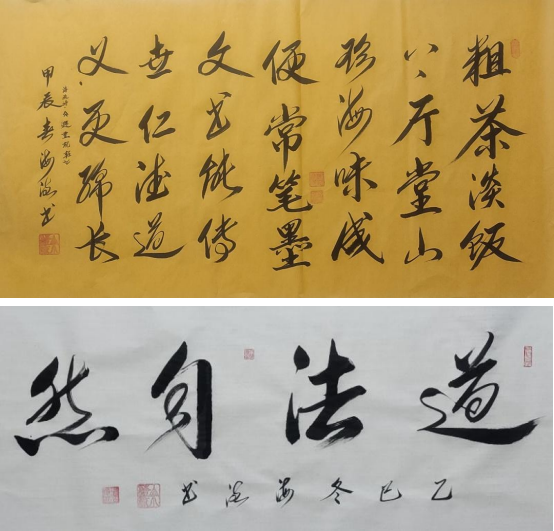 粗茶淡饭
厅堂山
珍海味成
便常笔墨
文书能传
世仁德道
义更绵长
甲辰春海书
道法自然
乙巳冬海书